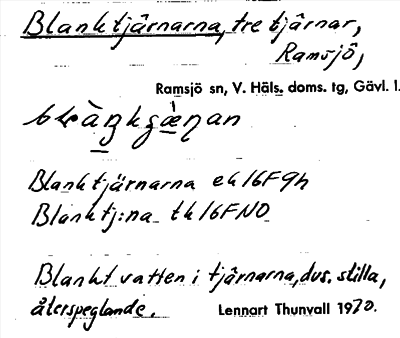 Blanktjärnarna, tre tjärnar,
Ramsjö,
Ramsjö sn, V. Häls. doms. tg, Gävl. l.
Blanktjärnarna ek 16F9h
Blanktj:na tk 16FNO
Blankt vatten i tjärnarna, dvs. stilla,
återspeglande.
Lennart Thunvall 1970.